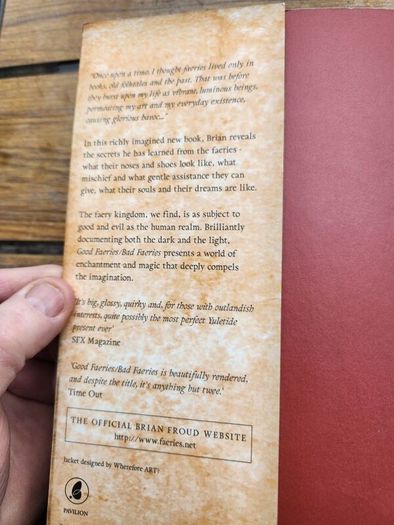 'Once upon a time, I thought faeries lived only in
books, old folktales and the past. That was before
they burst upon my life as vibrant, luminous beings,
permeating my art and my everyday existence,
causing glorious havoc...'
In this richly imagined new book, Brian reveals
the secrets he has learned from the faeries -
what their noses and shoes look like, what
mischief and what gentle assistance they can
give, what their souls and their dreams are like.
The faery kingdom, we find, is as subject to
good and evil as the human realm. Brilliantly
documenting both the dark and the light,
Good Faeries/Bad Faeries presents a world of
enchantment and magic that deeply compels
the imagination.
'It's big, glossy, quirky and, for those with outlandish
interests, quite possibly the most perfect Yuletide
present ever'
SFX Magazine
'Good Faeries/Bad Faeries is beautifully rendered,
and despite the title, it's anything but twee.'
Time Out
THE OFFICIAL BRIAN FROUD WEBSITE
http://www.faeries.net
Jacket designed by Wherefore ART?
PAVILION